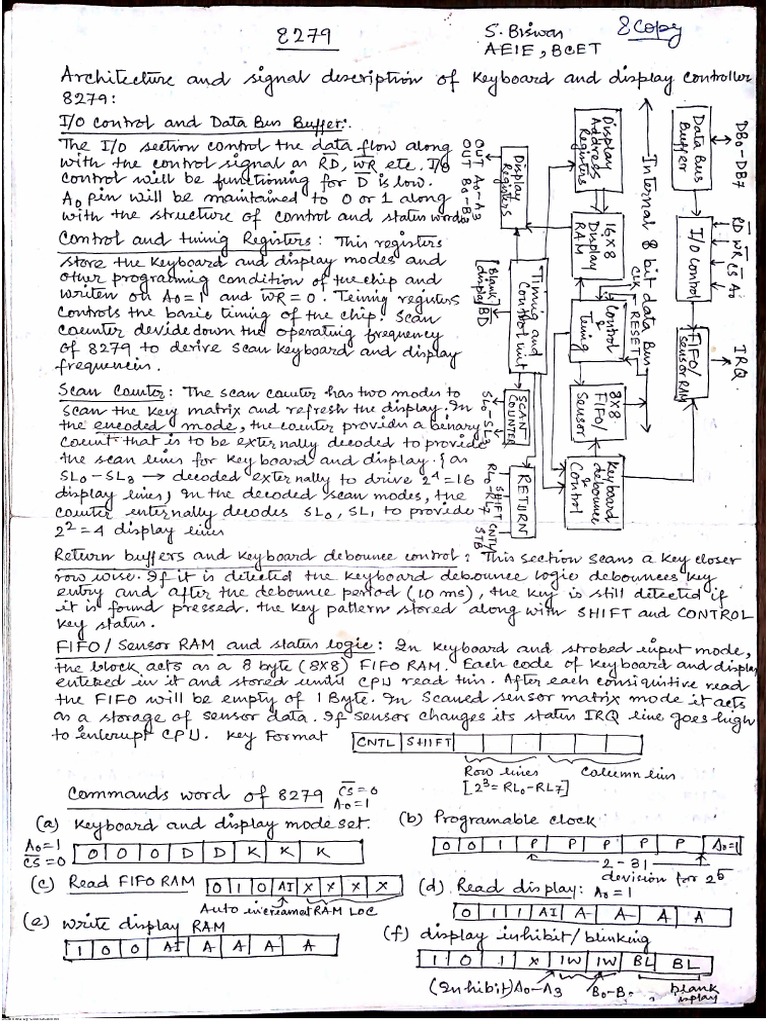 8279
S. Biswas
AEIE, BCET
8 Copy
Architecture and signal description of Keyboard and display controller
8279:
I/O control and Data Bus Buffer:
The I/O section control the data flow along
with the control signal as RD, WR etc. I/O
control will be functioning for D is low.
A0 pin will be maintained to 0 or 1 along
with the structure of control and status words
Control and timing Registers: This registers
store the keyboard and display modes and
other programing condition of the chip and
writen on A0=1 and WR=0. Teimig registers
controls the basic timing of the chip. Scan
counter devide down the operating frequency
of 8279 to derive scan keyboard and display
frequencies.
Scan Couter: The scan couter has two modes to
scan the key matrix and refresh the display. In
the encoded mode, the counter provides a binary
count that is to be externally decoded to provide
the scan lines for keyboard and display. {as
SL0-SL3 → decoded externally to drive 2^4=16
display lines, In the decoded scan modes, the
counter internally decodes SL0, SL1 to provide
2^2=4 display lines
DB0-DB7
RD WR CS A0
IRQ
Data Bus Buffer
I/O control
FIFO/ Sensor RAM
Internal 8 bit data Bus
CLK
RESET
Display Address Registers
16X8 Display RAM
Control & Timing
8X8 FIFO/ Sensor
Keyboard debounce & Control
Display Registers
Timing and Control unit
SCAN COUNTER
RETURN
OUT A0-A3
OUT B0-B3
[Blank display] BD
SL0-SL3
RL0-RL7
SHIFT
CNTL/ STB
Return buffers and keyboard debounce control: This section scans a key closer
row wise. If it is detected the keyboard debounce logic debounces key
entry and after the debounce period (10 ms), the key is still detected if
it is found pressed. the key pattern stored along with SHIFT and CONTROL
key status.
FIFO/Sensor RAM and status logic: In keyboard and strobed input mode,
the block acts as a 8 byte (8X8) FIFO RAM. Each code of keyboard and display
enteked in it and stored until CPU read this. After each consiquitive read
the FIFO will be empty of 1 Byte. In Scaned sensor matrix mode it acts
as a storage of sensor data. If sensor changes its status IRQ line goes high
to interupt CPU. Key Format
CNTL SHIFT
Row lines
[2^3=RL0-RL7]
Column lines
Commands word of 8279 CS=0
A0=1
(a) Keyboard and display mode set.
A0=1
CS=0
0 0 0 D D K K K
(b) Programable clock
0 0 1 P P P P P A0=1
2-31
devision for 2^5
(c) Read FIFO RAM 0 1 0 AI X X X X
Auto increamet RAM LOC
(d) Read display: A0=1
0 1 1 AI A A A A
(e) write display RAM
1 0 0 AI A A A A
(f) display inhibit/blinking
1 0 1 X IW IW BL BL
(Inhibit) A0-A3
blank display